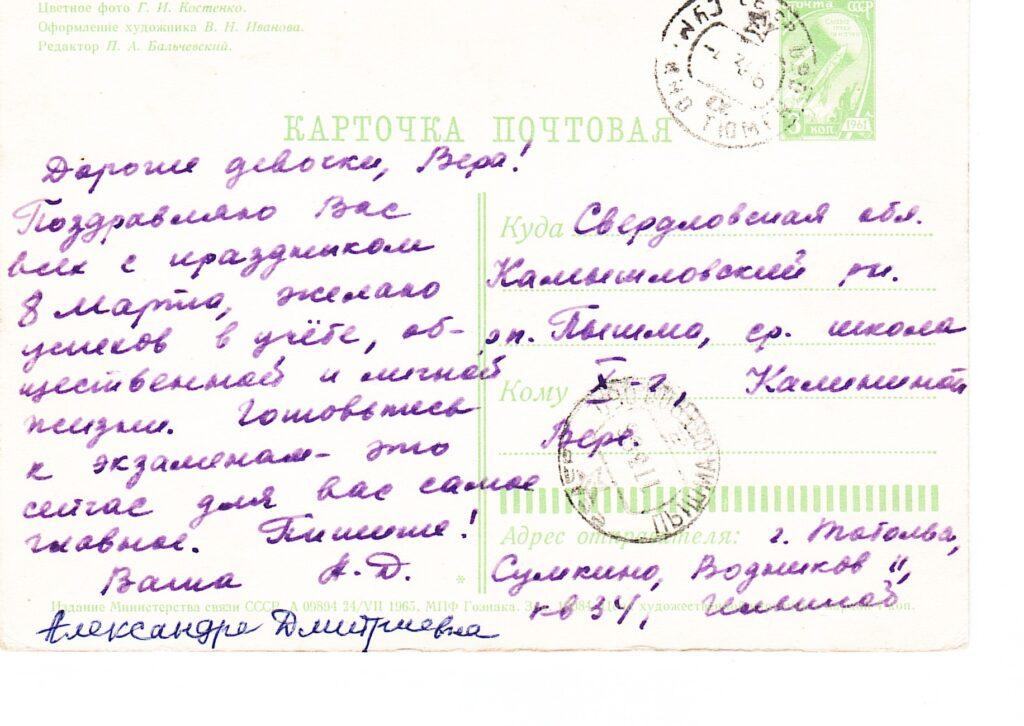 Цветное фото Г. И. Костенко.
Оформление художника В. Н. Иванова.
Редактор П. А. Бальчевский.
ПОЧТА СССР
КОП. 1961
КАРТОЧКА ПОЧТОВАЯ
Дорогие девочки, Вера!
Поздравляю Вас
всех с праздником
8 Марта, желаю
успехов в учёбе, об-
щественной и личной
жизни. Готовьтесь
к экзаменам – это
сейчас для вас самое
главное. Пишите!
Ваша А.Д.
Александра Дмитриевна
Куда Свердловская обл.
Камышловский рн.
п. Пышма, ср. школа
Кому X-2, Калининой
Вере.
ПЫШМА
Адрес отправителя: г. Тобольск,
Сумкино, Водников 11,
кв 34, Ильиной
* Издание Министерства связи СССР. А 09894 24/VII 1965. МПФ Гознака.